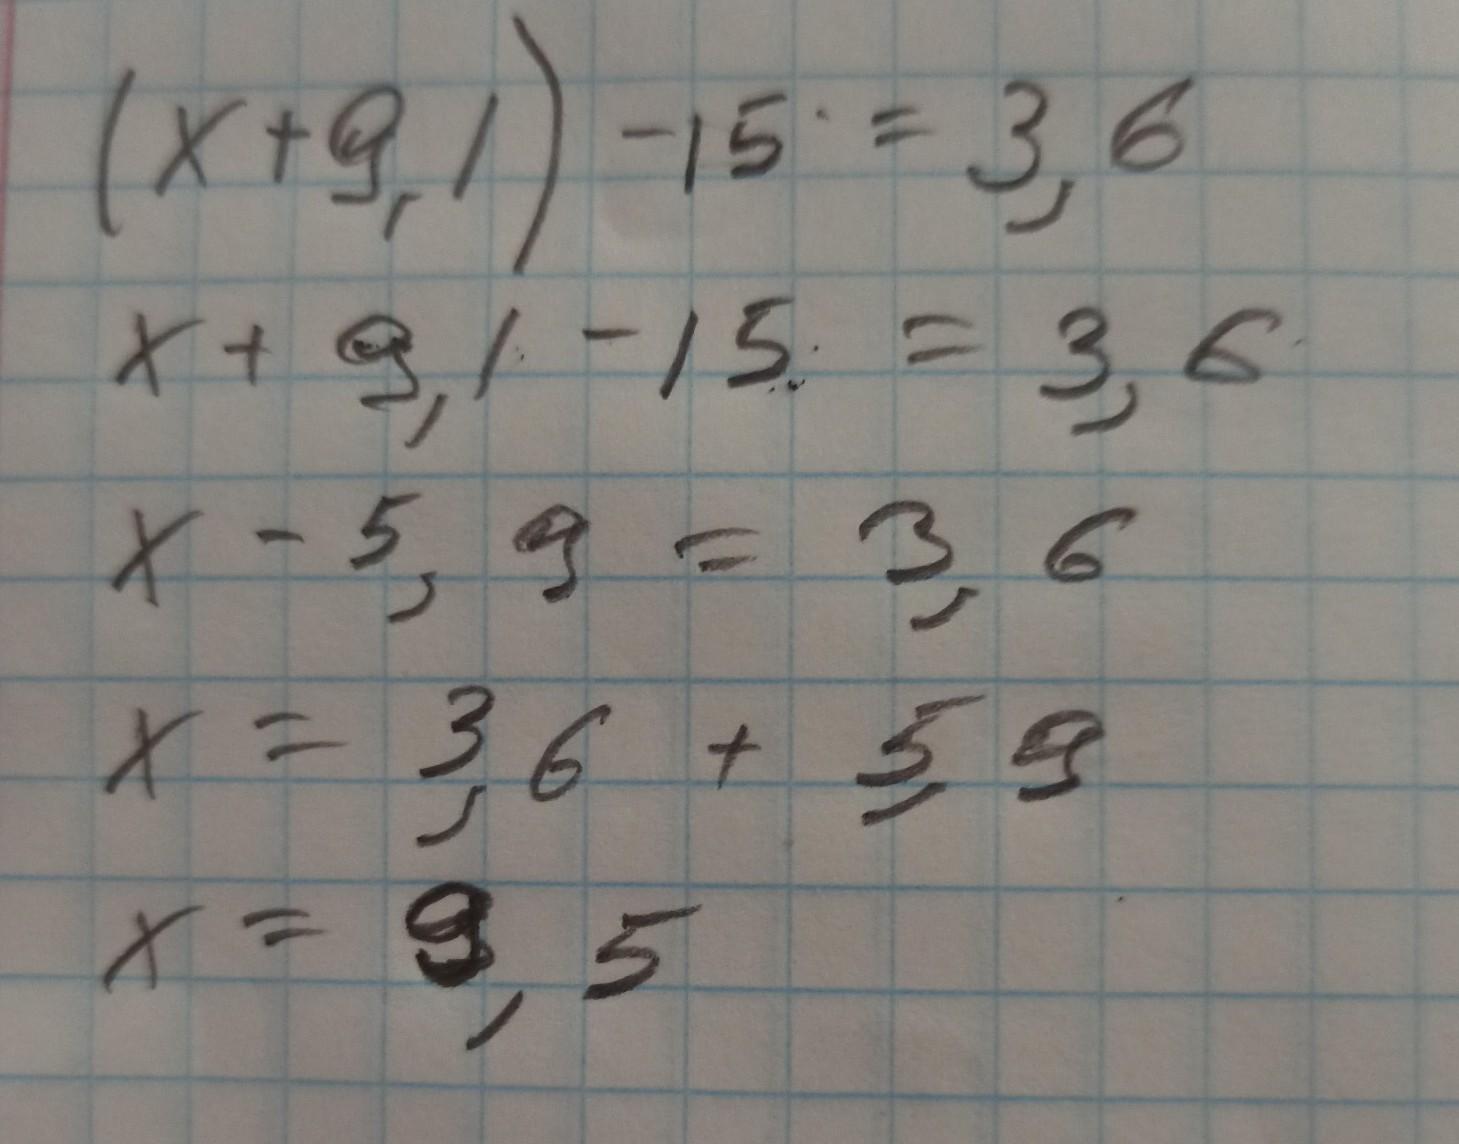 (x+9,1) -15 = 3,6
x + 9,1 - 15 = 3,6
x - 5,9 = 3,6
x = 3,6 + 5,9
x = 9,5